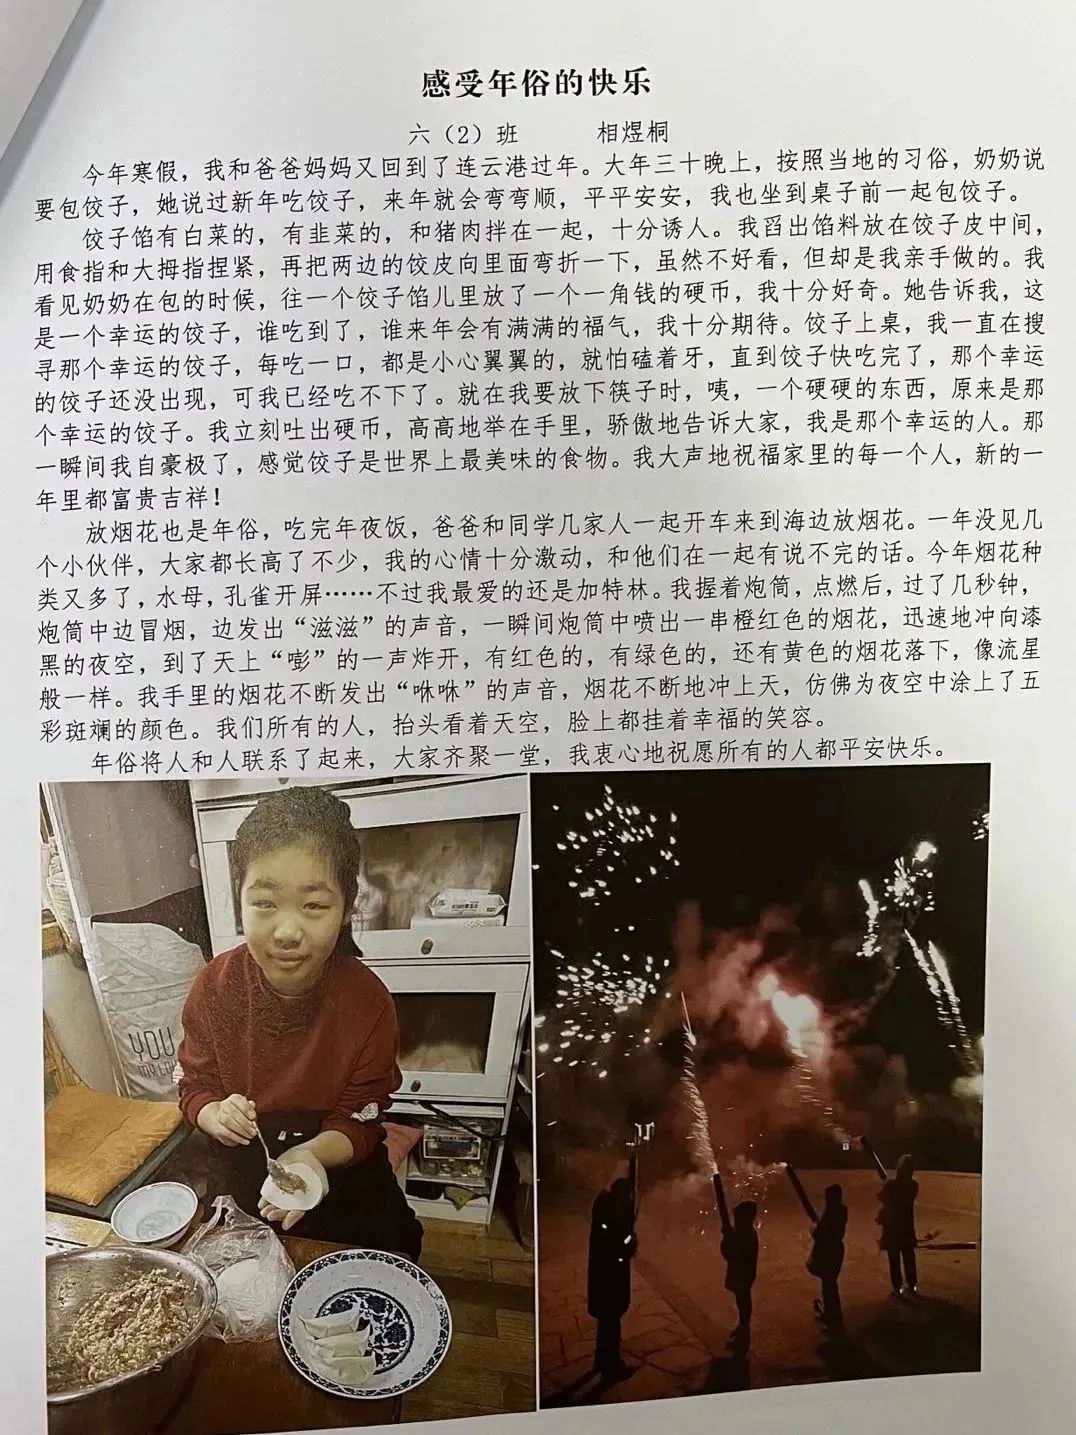 感受年俗的快乐
六（2）班 相煜桐
今年寒假，我和爸爸妈妈又回到了连云港过年。大年三十晚上，按照当地的习俗，奶奶说
要包饺子，她说过新年吃饺子，来年就会弯弯顺，平平安安，我也坐到桌子前一起包饺子。
饺子馅有白菜的，有韭菜的，和猪肉拌在一起，十分诱人。我舀出馅料放在饺子皮中间，
用食指和大拇指捏紧，再把两边的饺皮向里面弯折一下，虽然不好看，但却是我亲手做的。我
看见奶奶在包的时候，往一个饺子馅儿里放了一个一角钱的硬币，我十分好奇。她告诉我，这
是一个幸运的饺子，谁吃到了，谁来年会有满满的福气，我十分期待。饺子上桌，我一直在搜
寻那个幸运的饺子，每吃一口，都是小心翼翼的，就怕磕着牙，直到饺子快吃完了，那个幸运
的饺子还没出现，可我已经吃不下了。就在我要放下筷子时，咦，一个硬硬的东西，原来是那
个幸运的饺子。我立刻吐出硬币，高高地举在手里，骄傲地告诉大家，我是那个幸运的人。那
一瞬间我自豪极了，感觉饺子是世界上最美味的食物。我大声地祝福家里的每一个人，新的一
年里都富贵吉祥！
放烟花也是年俗，吃完年夜饭，爸爸和同学几家人一起开车来到海边放烟花。一年没见几
个小伙伴，大家都长高了不少，我的心情十分激动，和他们在一起有说不完的话。今年烟花种
类又多了，水母，孔雀开屏……不过我最爱的还是加特林。我握着炮筒，点燃后，过了几秒钟，
炮筒中边冒烟，边发出“滋滋”的声音，一瞬间炮筒中喷出一串橙红色的烟花，迅速地冲向漆
黑的夜空，到了天上“嘭”的一声炸开，有红色的，有绿色的，还有黄色的烟花落下，像流星
般一样。我手里的烟花不断发出“咻咻”的声音，烟花不断地冲上天，仿佛为夜空中涂上了五
彩斑斓的颜色。我们所有的人，抬头看着天空，脸上都挂着幸福的笑容。
年俗将人和人联系了起来，大家齐聚一堂，我衷心地祝愿所有的人都平安快乐。
YOU